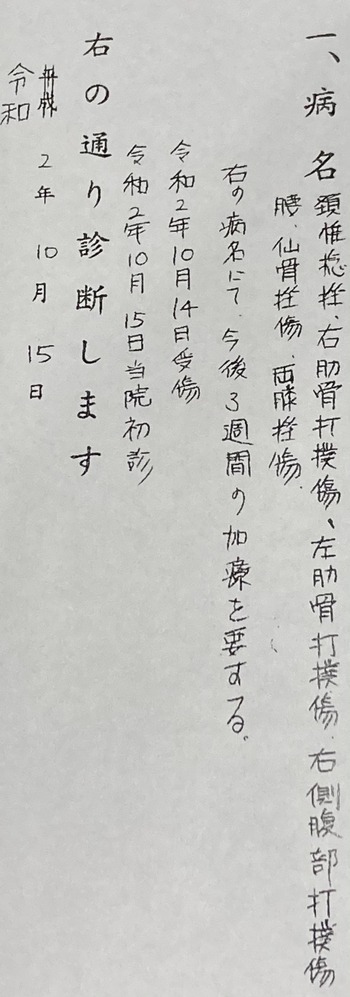 一、病名 頚椎捻挫、右肋骨打撲傷、左肋骨打撲傷、右側腹部打撲傷
腰、仙骨挫傷、両膝挫傷、
右の病名にて、今後3週間の加療を要する。
令和2年10月14日受傷
令和2年10月15日当院初診
右の通り診断します
平成 2年 10月 15日
令和